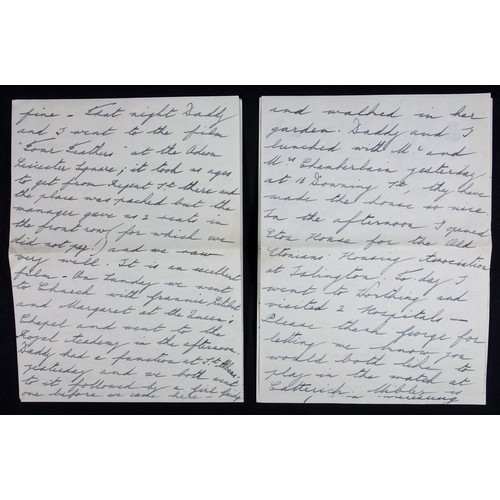 fine – That night Daddy
and I went to the film
"Four Feathers" at the Odeon
Leicester Square; it took us ages
to get from Regent St there and
the place was packed but the
manager gave us 2 seats in
the front row (for which we
did not pay!) and we saw
very well. It is an excellent
film – On Sunday we went
to Church with Grannie,
and Margaret at the Queen's
Chapel and went to the
Royal Academy in the afternoon.
Daddy had a function at St
yesterday and we both went
to it followed by a
one before we came here –
and walked in her
garden. Daddy and I
lunched with Mr and
Mrs Chamberlain yesterday
at 10 Downing St, they have
made the house so nice
In the afternoon I opened
Eton House for the Old
Etonians Housing Association
at Islington. To day I
went to Worthing and
visited 2 Hospitals –
Please thank George for
letting me know you
would both like to
play in the match at
Catterick.